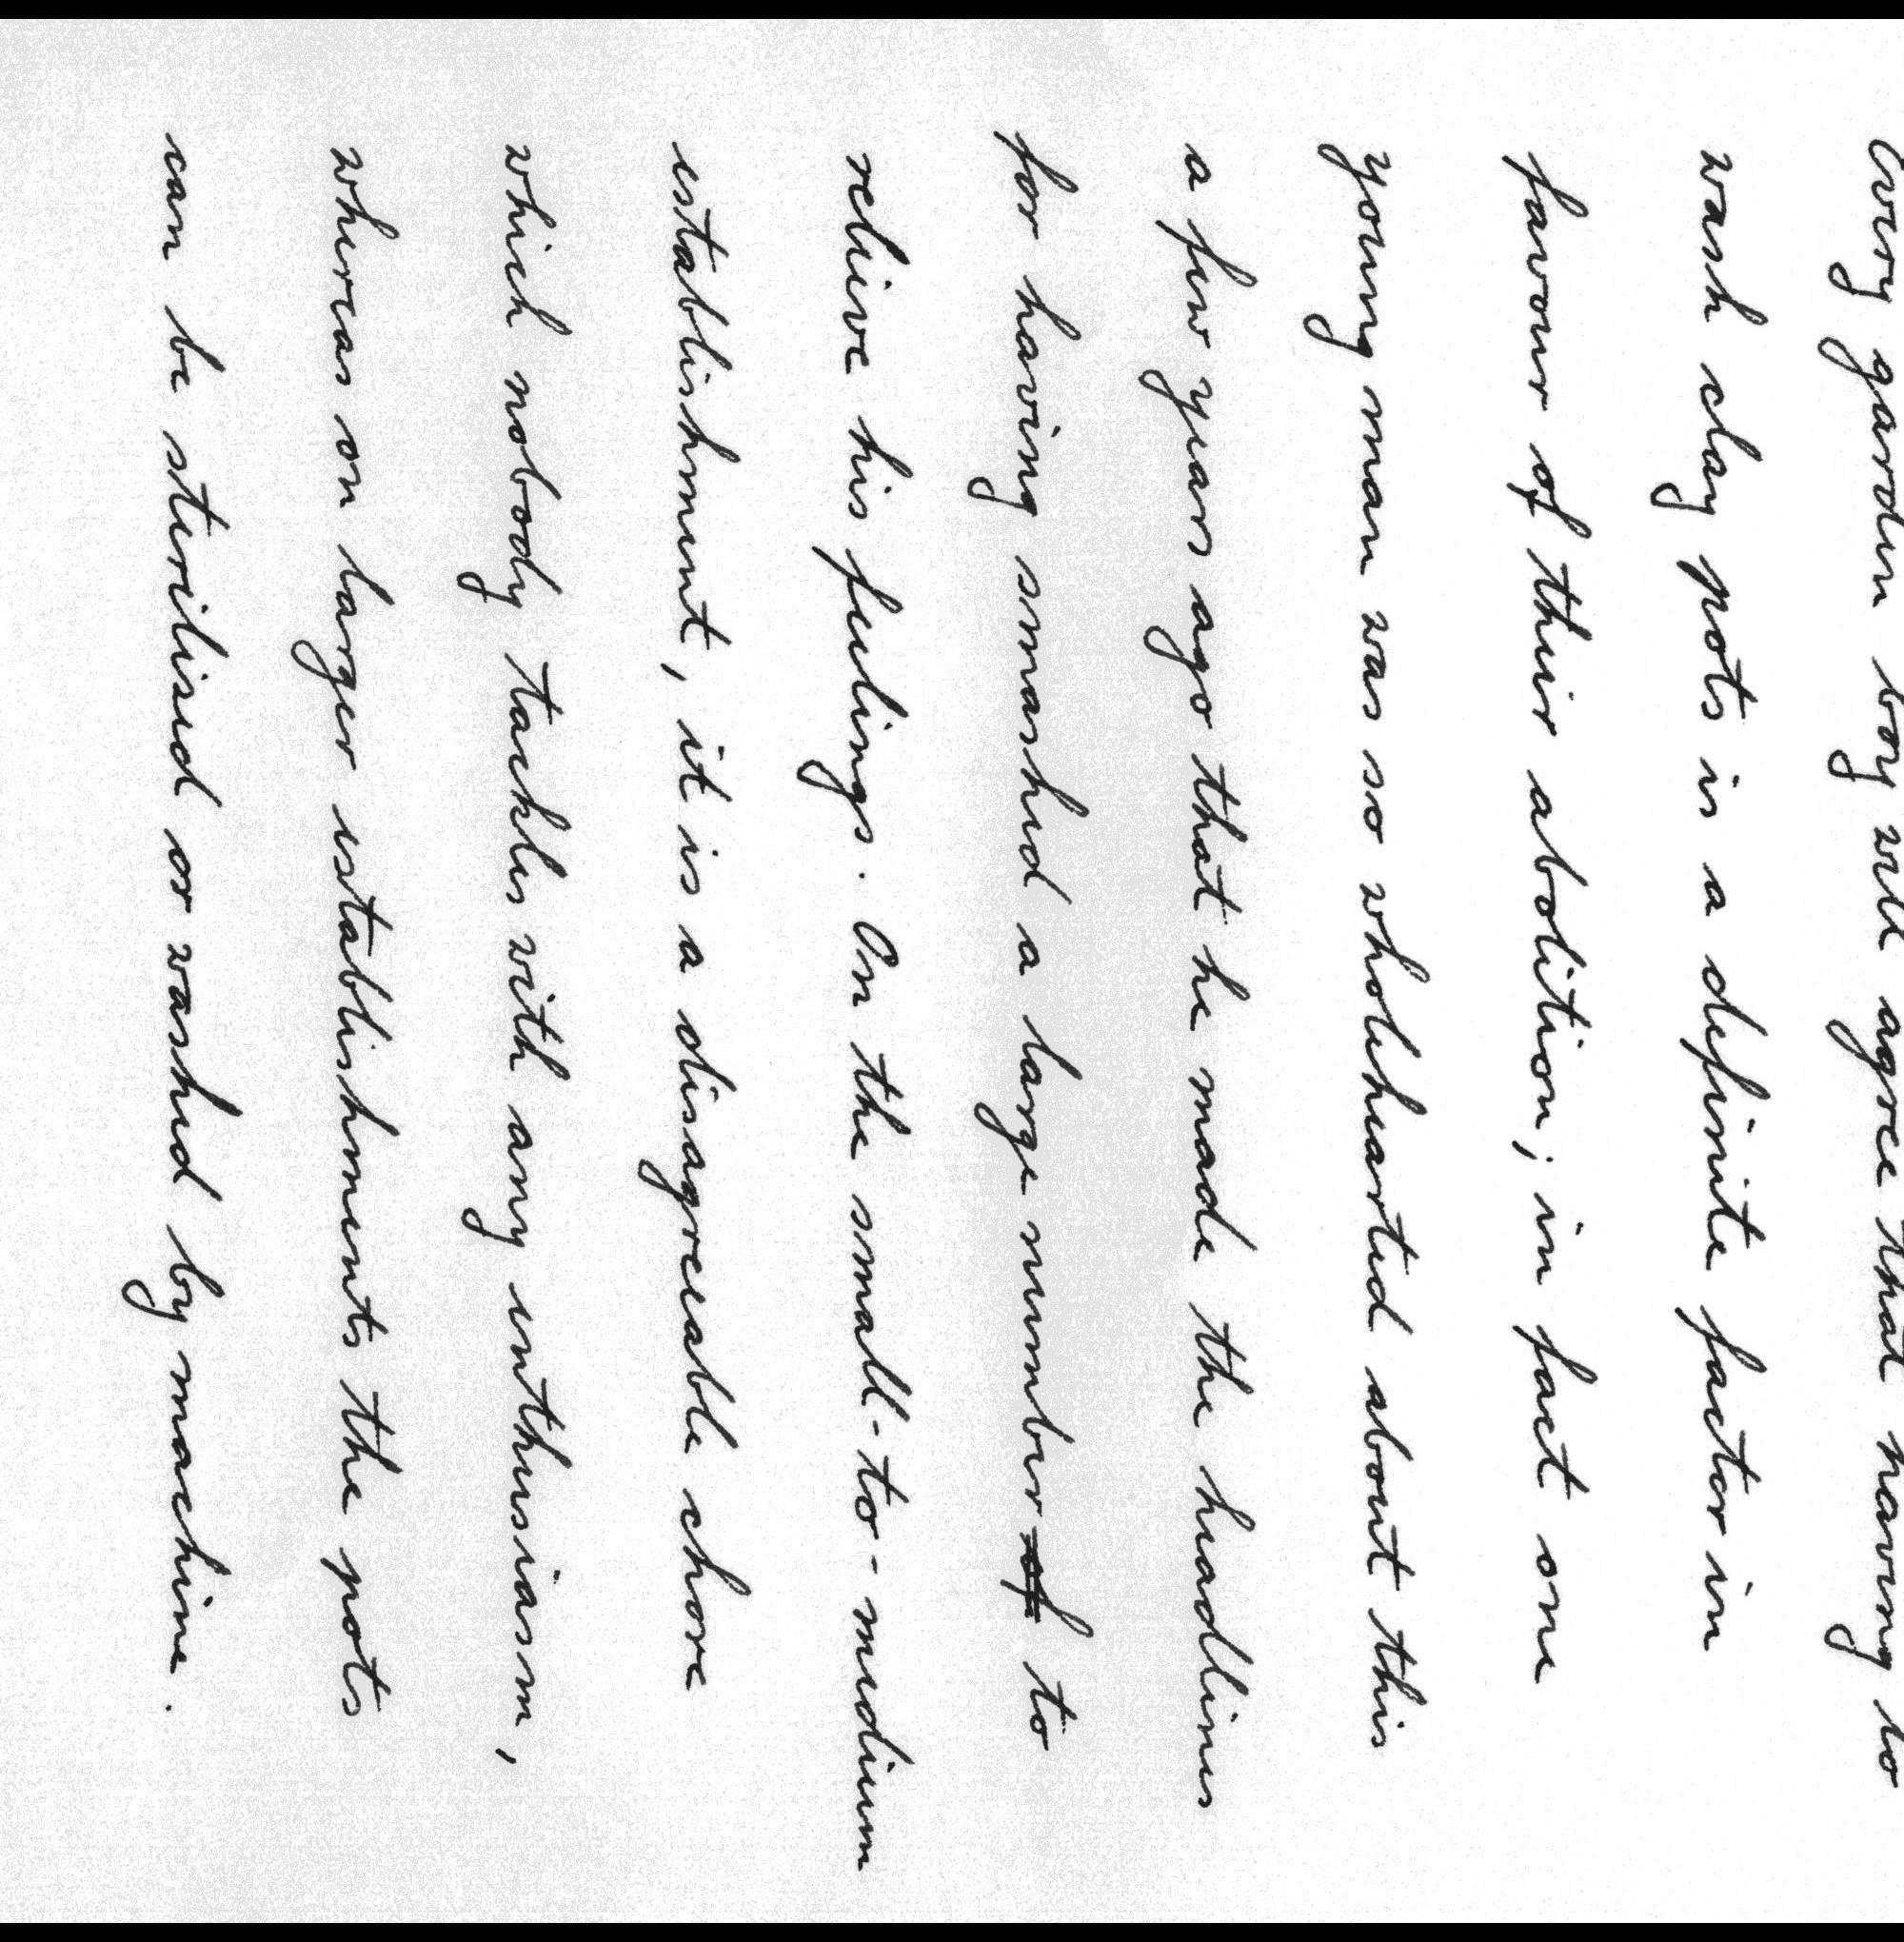 Every garden boy will agree that having to
wash clay pots is a definite factor in
favour of their abolition; in fact one
young man was so wholehearted about this
a few years ago that he made the headlines
for having smashed a large number to
relieve his feelings. On the small-to-medium
establishment, it is a disagreeable chore
which nobody tackles with any enthusiasm,
whereas on larger establishments the pots
can be sterilised or washed by machine.